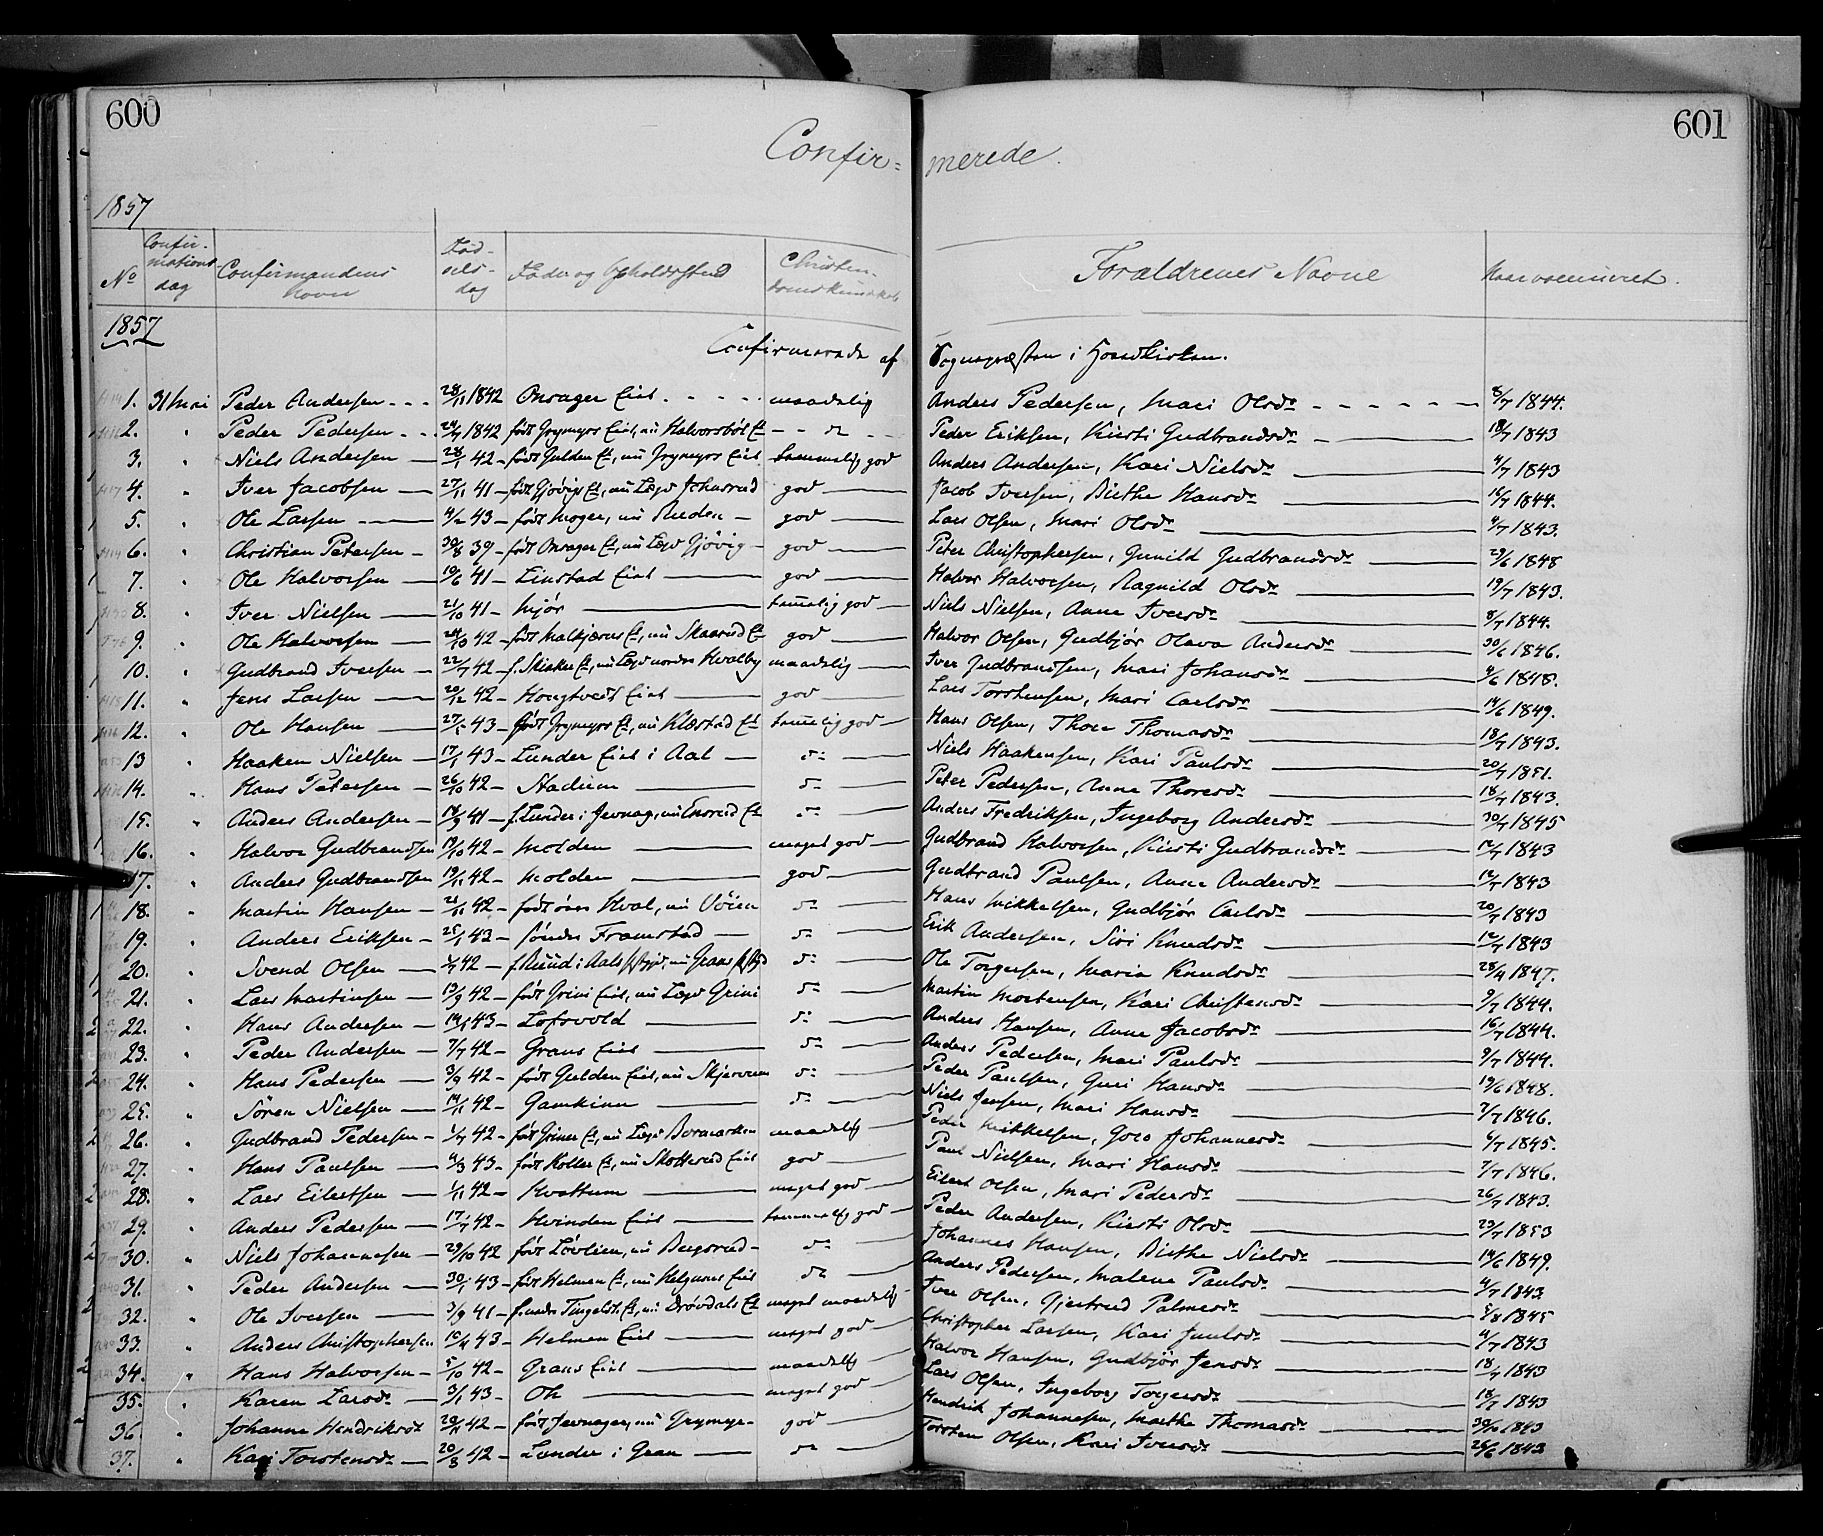 600
601
Confir= merede.
1857
No Confir- mations dag Confirmandens Navn Fød- sels- dag Føde og Opholdssted Christen- domskundskab Forældrenes Navne Naar vaccineret.
1857
Confirmerede af Sognepræsten i Hovedkirken.
1. 31 Mai Peder Andersen 28/11 1842 Onsager Eiet maadelig Anders Pedersen, Mari Olsdr 8/7 1844.
2. " Peder Pedersen 1842 født Grymyrs Eiet, nu Halvorsbøl Et do Peder Eriksen, Kirsti Gudbrandsdr 18/7 1843
3. " Niels Andersen 28/1 42 født Gulden Et, nu Grymyrs Eiet temmelig god Anders Andersen, Kari Nielsdr 4/7 1843
4. " Iver Jacobsen 27/11 41 født Gjøvigs Et, nu Lægd Johnsrud god Jacob Iversen, Birthe Hansdr 16/7 1844.
5. " Ole Larsen 43 født Moger, nu Ruden god Lars Olsen, Mari Olsdr 4/7 1843.
6. " Christian Petersen 30/8 39 født Onsager Et, nu Lægd Gjøvig god Peter Christophersen, Gunild Gudbrandsdr 29/6 1848
7. " Ole Halvorsen 19/6 41 Linstad Eiet god Halvor Halvorsen, Ragnild Olsdr 19/7 1843.
8. " Iver Nielsen 21/10 41 Mjør temmelig god Niels Nielsen, Anne Iversdr 8/7 1844.
9. " Ole Halvorsen 24/10 42 født Malkjærns Et, nu Skaarud Et god Halvor Olsen, Gudbjør Olava Andersdr 30/6 1846.
10. " Gudbrand Iversen 22/7 42 f. Skiaker Et, nu Lægd nordre Hvalby maadelig Iver Gudbrandsen, Mari Johansdr 4/6 1848.
11. " Jens Larsen 20/12 42 Hougtvedt Eiet god Lars Torstensen, Mari Carlsdr 14/6 1849.
12. " Ole Hansen 43 født Grymyrs Et, nu Klæstad Et temmelig god Hans Olsen, Thore Thomasdr 18/7 1843.
13 " Haaken Nielsen 17/1 43 Lunder Eiet i Aal do Niels Haakensen, Kari Paulsdr 20/7 1851.
14. " Hans Petersen 26/10 42 Stadum do Peter Pedersen, Anne Thoresdr 18/7 1843.
15. " Anders Andersen 18/9 41 f. Lunder i Jevnag, nu Enerud Et do Anders Fredriksen, Ingeborg Andersdr 30/7 1845
16. " Halvor Gudbrandsen 19/10 42 Molden meget god Gudbrand Halvorsen, Kirsti Gudbrandsdr 12/7 1843
17. " Anders Gudbrandsen 42 Molden god Gudbrand Paulsen, Anne Andersdr 12/7 1843
18. " Martin Hansen 21/11 42 født øvre Hval, nu Vøien do Hans Mikkelsen, Gudbjør Carlsdr 20/7 1843
19. " Anders Eriksen 25/1 43 søndre Framstad do Erik Andersen, Siri Knudsdr 12/7 1843
20. " Svend Olsen 42 f. Ruud i Aals, nu Grans do Ole Torgersen, Maria Knudsdr 1847.
21. " Lars Martinsen 13/9 42 født Grini Eiet, nu Lægd Grini do Martin Mortensen, Kari Christensdr 9/7 1844.
22. " Hans Andersen 43 Lofsvold do Anders Hansen, Anne Jacobsdr 16/7 1844.
23. " Peder Andersen 7/7 42 Grans Eiet do Anders Pedersen, Mari Paulsdr 9/7 1844.
24. " Hans Pedersen 3/9 42 født Gulden Eiet, nu Skjervum do Peder Paulsen, Guri Hansdr 19/6 1848.
25. " Søren Nielsen 42 Gamkinn do Niels Jensen, Mari Hansdr 7/7 1846.
26. " Gudbrand Pedersen 1/7 42 født Griner Et, nu Lægd Bormarken maadelig Peder Mikkelsen, Goro Johannesdr 4/7 1845.
27. " Hans Paulsen 43 født Koller Et, nu Skotterud Eiet god Paul Nielsen, Mari Hansdr 7/7 1846.
28. " Lars Eilertsen 1/11 42 Kvattum meget god Eilert Olsen, Mari Pedersdr 26/7 1843.
29. " Anders Pedersen 17/7 42 Hvinden Eiet temmelig god Peder Andersen, Kirsti Olsdr 23/7 1853
30. " Niels Johannesen 29/10 42 født Løvlien, nu Bergsrud do Johannes Hansen, Birthe Nielsdr 14/6 1849.
31. " Peder Andersen 30/1 43 født Helmen Et, nu Helgunes Eiet do Anders Pedersen, Malene Paulsdr 4/7 1843
32. " Ole Iversen 3/9 41 f. nedre Tingelst. Et, nu Drøvdals Et meget maadelig Iver Olsen, Gjertrud Palmesdr 5/8 1845
33. " Anders Christophersen 43 Helmen Eiet meget god Christopher Larsen, Kari Juulsdr 4/7 1843
34. " Hans Halvorsen 5/10 42 Grans Eiet maadelig Halvor Hansen, Gudbjør Jensdr 18/7 1843
35. " Karen Larsdr 3/1 43 Oh meget god Lars Olsen, Ingeborg Torgersdr 18/7 1843
36 " Johanne Hendriksdr 42 født Jevnager, nu Grymyr god Hendrik Johannesen, Marthe Thomasdr 1843
37. " Kari Torstensdr 20/3 42 Lunder i Gran do Torsten Olsen, Kari Iversdr 1843